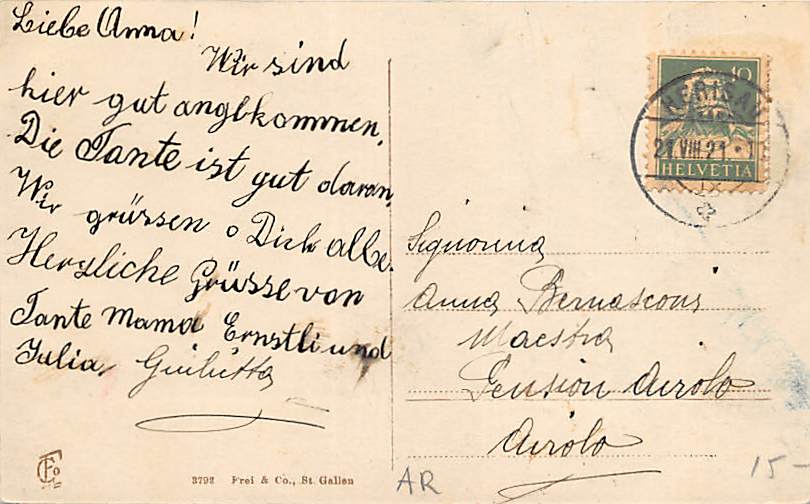 Liebe Anna!
Wir sind
hier gut angbkommen.
Die Tante ist gut daran.
Wir grüssen Dich albe.
Herzliche Grüsse von
Tante Mama Ernstli und
Julia, Giulietta
10
HERISAU
21.VIII.21
HELVETIA
Signorina
Anna Bernasconi
Maestra
Pension Airolo
Airolo
3792 Frei & Co., St. Gallen
AR
15-